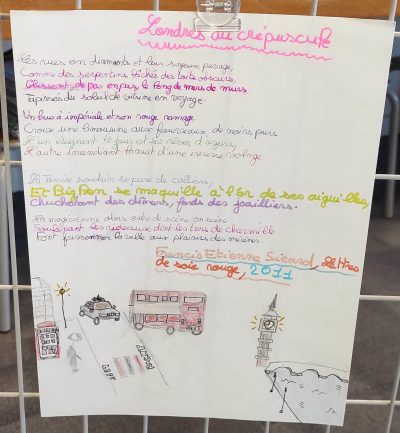 Londres au crépuscule
Les rues en diamants et leur soyeux pavage,
Comme des serpentins fichés des toits obscurs,
Glissent, de pas en pas, le long de murs de murs
Tapissés du soleil de vitrine en voyage.
Un bus à impériale et son rouge ramage
Croise une limousine aux fourreaux de noirs purs
L'un éteignant le jour et ses rêves d'azurs,
L'autre incendiant la nuit d'une ivresse volage
La Tamise scintille se pare de colliers,
Et Big Ben se maquille à l'or de ses aiguilles,
Chuchotant des diamants, fards des joailliers.
La magicienne alors entre de scène en scène
Soulevant les rideaux dont les tors de charmille
Font foisonner la ville aux plaisirs des mécènes.
Francis Etienne Sicard, Lettres
de soie rouge, 2011